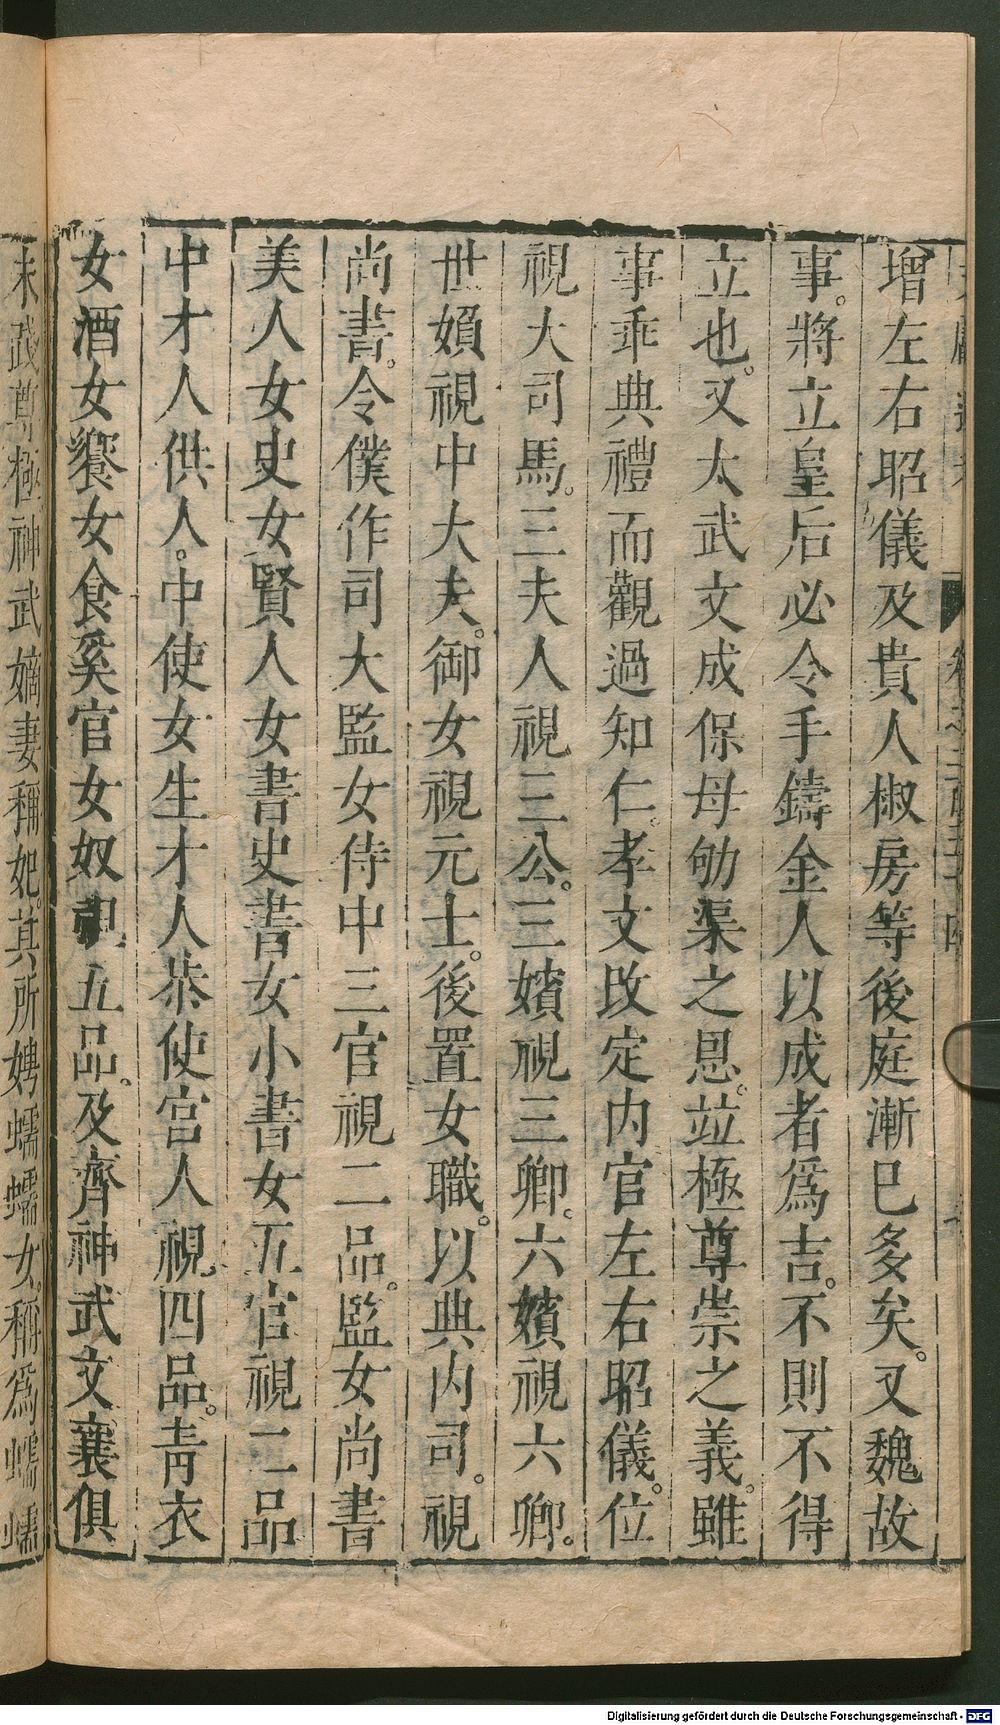 增左右昭儀及貴人椒房等後庭漸已多矣。又魏故
事。將立皇后必令手鑄金人以成者為吉。不則不得
立也。又太武文成保母劬渠之恩。竝極尊崇之義。雖
事乖典禮而觀過知仁。孝文改定內官左右昭儀。位
視大司馬。三夫人視三公。三嬪視三卿。六嬪視六卿。
世婦視中大夫。御女視元士。後置女職。以典內司。視
尚書。令僕作司大監女侍中三官視二品。監女尚書
美人女史女賢人女書史書女小書女五官視三品
中才人供人。中使女生才人恭使宮人視四品。青衣
女酒女饗女食奚官女奴視五品。及齊神武文襄俱
未踐尊極神武嫡妻稱妃。其所娉蠕蠕女。稱為蠕蠕
Digitalisierung gefördert durch die Deutsche Forschungsgemeinschaft - DFG